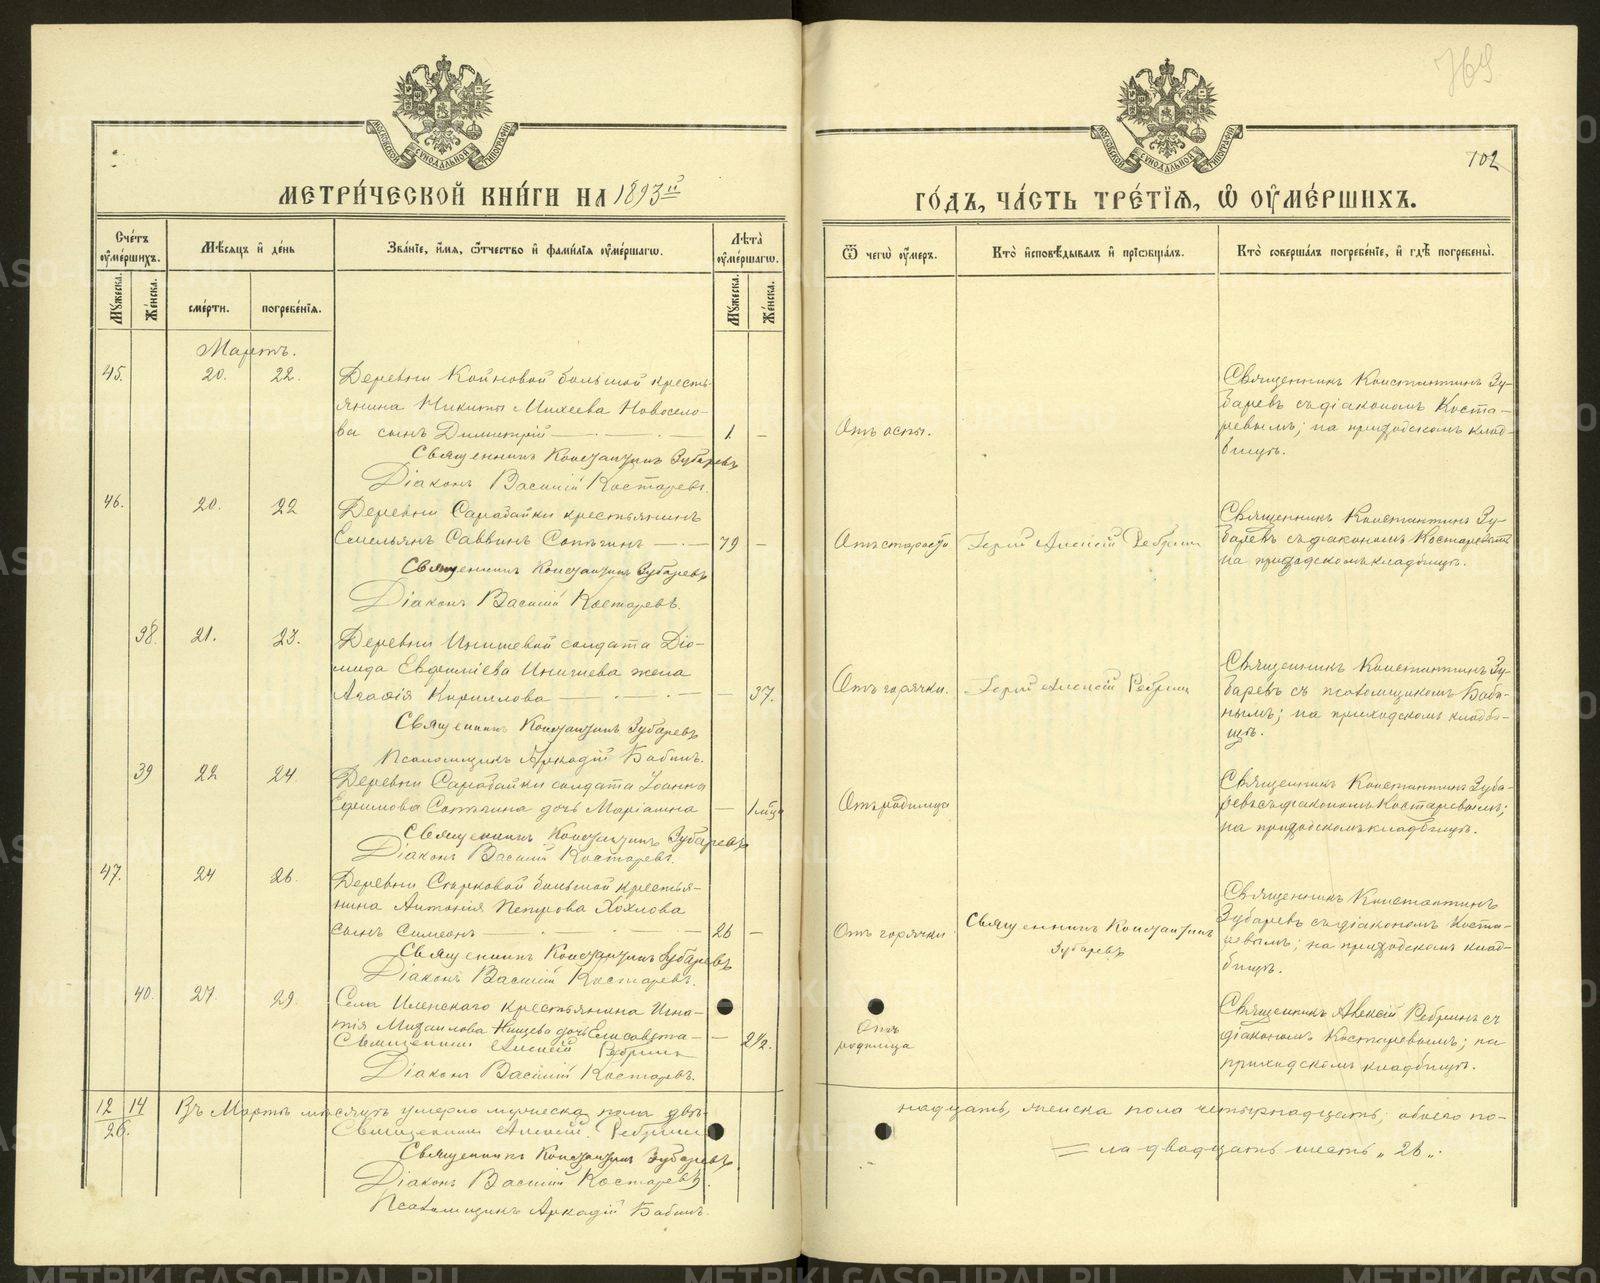 769
102
МОСКОВСКОЙ СѴНОДАЛЬНОЙ ТИПОГРАФІИ
МОСКОВСКОЙ СѴНОДАЛЬНОЙ ТИПОГРАФІИ
МЕТРИ́ЧЕСКОЙ КНИ́ГИ НА 1893й
ГО́ДЪ, ЧА́СТЬ ТРЕ́ТІѦ, Ѡ҆ ОУ҆МЕ́РШИХЪ.
Сче́тъ оу҆ме́ршихъ.
Мѣ́сѧцъ и҆ де́нь
Зва́нїе, и҆́мѧ, ѻ҆́тчество и҆ фами́лїѧ оу҆ме́ршагѡ.
Лѣта̀ оу҆ме́ршагѡ.
Ѿ чегѡ̀ оу҆́меръ.
Кто̀ и҆сповѣ́дывалъ и҆ прїѡбща́лъ.
Кто̀ соверша́лъ погребе́нїе, и҆ гдѣ̀ погребены̀.
Мꙋ́жеска.
Же́нска.
сме́рти.
погребе́нїѧ.
Мꙋ́жеска.
Же́нска.
Мартъ.
45. 20. 22. Деревни Койновой большой кресть-
янина Никиты Михеева Новосело-
ва сынъ Димитрій 1 -
Священникъ Константинъ Зубаревъ
Діаконъ Василій Костаревъ.
Отъ оспы.
Священникъ Константинъ Зу-
баревъ съ діакономъ Коста-
ревымъ; на приходскомъ клад-
бищѣ.
46. 20. 22 Деревни Сарабайки крестьянинъ
Емельянъ Саввинъ Сопыгинъ 79 -
Священникъ Константинъ Зубаревъ
Діаконъ Василій Костаревъ.
Отъ старости
Іерей Алексій Ребринъ
Священникъ Константинъ Зу-
баревъ съ діакономъ Костаревымъ
на приходскомъ кладбищѣ.
38. 21. 23. Деревни Инишевой солдата Діо-
мида Евфиміева Инишева жена
Агафія Кириллова - 37.
Священникъ Константинъ Зубаревъ
Псаломщикъ Аркадій Бабинъ.
Отъ горячки.
Іерей Алексій Ребринъ
Священникъ Константинъ Зу-
баревъ съ псаломщикомъ Баби-
нымъ; на приходскомъ кладби-
щѣ.
39 22 24. Деревни Сарабайки солдата Іоанна
Ефимова Сопыгина дочь Маріамна - 1 мѣца
Священникъ Константинъ Зубаревъ
Діаконъ Василій Костаревъ.
Отъ родимца
Священникъ Константинъ Зуба-
ревъ съ діакономъ Костаревымъ;
на приходскомъ кладбищѣ.
47. 24 26. Деревни Старковой большой крестья-
нина Антонія Петрова Хохлова
сынъ Симеонъ 26 -
Священникъ Константинъ Зубаревъ
Діаконъ Василій Костаревъ.
Отъ горячки
Священникъ Константинъ
Зубаревъ
Священникъ Константинъ
Зубаревъ съ діакономъ Коста-
ревымъ; на приходскомъ клад-
бищѣ.
40. 27. 29. Села Иленскаго крестьянина Игна-
тія Михаилова Нищева дочь Елисавета - 2 1/2.
Священникъ Алексій Ребринъ
Діаконъ Василій Костаревъ.
Отъ
родимца
Священникъ Алексій Ребринъ съ
діакономъ Костаревымъ; на
приходскомъ кладбищѣ.
12 14
26.
Въ Мартѣ мѣсяцѣ умерло мужеска пола двѣ-
надцать, женска пола четырнадцать; обоего по-
ла двадцать шесть „26„.
Священникъ Алексій Ребринъ
Священникъ Константинъ Зубаревъ
Діаконъ Василій Костаревъ.
Псаломщикъ Аркадій Бабинъ.